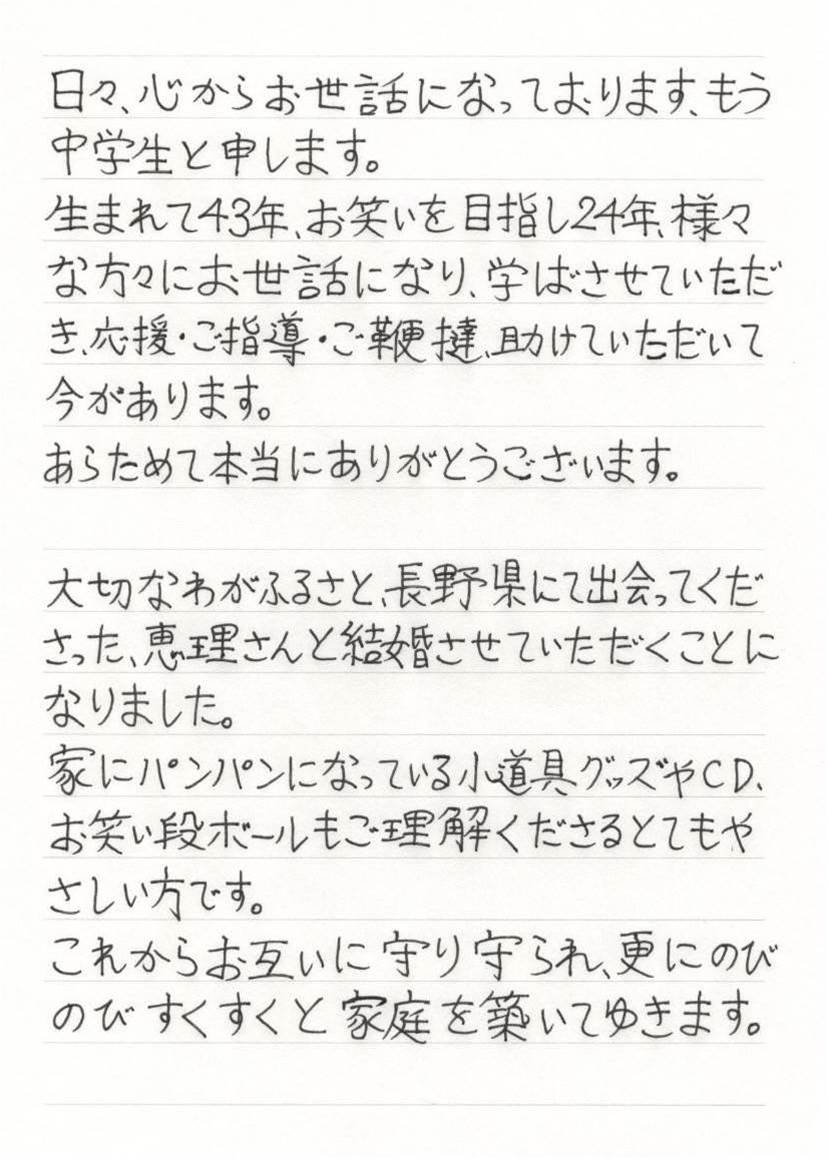 日々、心からお世話になっております、もう
中学生と申します。
生まれて43年、お笑いを目指し24年、様々
な方々にお世話になり、学ばさせていただ
き、応援・ご指導・ご鞭撻、助けていただいて
今があります。
あらためて本当にありがとうございます。
大切なわがふるさと、長野県にて出会ってくだ
さった、恵理さんと結婚させていただくことに
なりました。
家にパンパンになっている小道具グッズやCD、
お笑い段ボールもご理解くださるとてもや
さしい方です。
これからお互いに守り守られ、更にのび
のびすくすくと家庭を築いてゆきます。